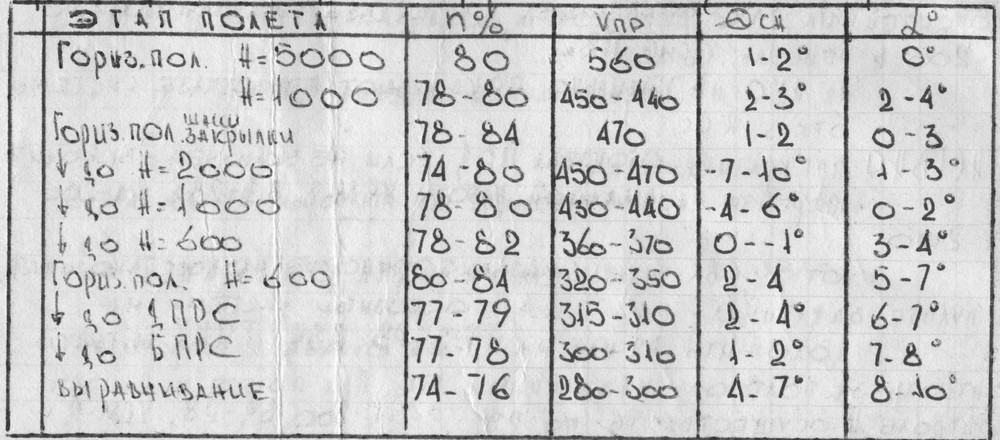 ЭТАП ПОЛЕТА п% Vпр α°
Гориз. пол. H=5000 80 560 1-2° 0°
H=1000 78-80 450-440 2-3° 2-4°
Гориз. пол. шасси закрылки 78-84 470 1-2 0-3
↓ до H=2000 74-80 450-470 -7-10° 1-3
↓ до H=1000 78-80 430-440 -4-6° 0-2°
↓ до H=600 78-82 360-370 0--1° 3-4°
Гориз. пол. H=600 80-84 320-350 2-4 5-7°
↓ до ДПРС 77-79 315-310 2-4° 6-7°
↓ до БПРС 77-78 300-310 1-2° 7-8°
ВЫРАВНИВАНИЕ 74-76 280-300 4-7° 8-10°